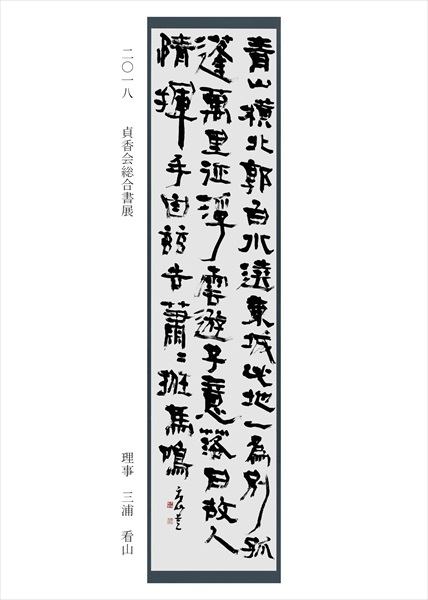 青山横北郭白水遶東城此地一為別孤
蓬萬里征浮雲遊子意落日故人
情揮手自茲去蕭〻班馬鳴
二〇一八　貞香会総合書展　理事　三浦　看山